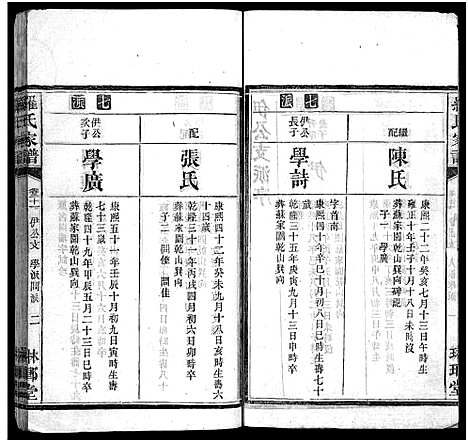 七派
伊公長子
學詩
字首南
康熙四十年辛巳十月初八日巳時生壽七十
歲
乾隆三十五年庚寅九月十三日申時卒
葬蘇家園乾山巽向
繼配
陳氏
康熙二十二年癸亥七月十三日午時生
雍正十年壬子十月十八日未時卒
葬蘇家園乾山巽向碑記
子一 學廣
七派
伊公次子
學廣
康熙五十一年壬辰十月初九日寅時生壽
七十三歲
乾隆四十九年甲辰五月二十三日巳時卒
葬蘇家園乾山巽向
配
張氏
康熙四十二年癸未九月十八日亥時生壽六
十四歲
乾隆三十一年丙戌四月初六日卯時卒
葬蘇家園乾山巽向
子二
羅氏家譜
卷十一 伊公支 學派問派 二